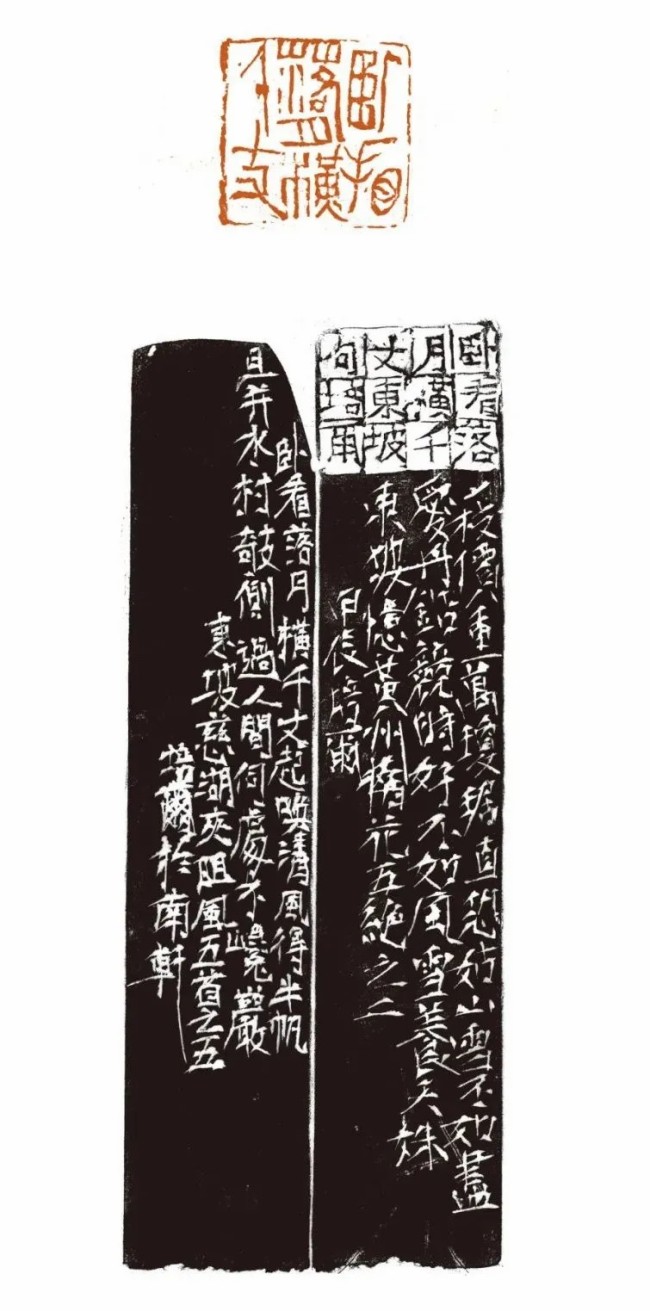 卧看
落月橫
千丈
卧看落
月橫千
丈東坡
句培爾
一枝價重萬瓊琚直恐姑山雪不如盡
愛丹鉛競時好不如風雪養天姝
東坡憶黃州梅花五絕之二
甲辰培爾
卧看落月橫千丈起喚清風得半帆
且并水村欹側過人間何處不巉巖
東坡慈湖夾阻風五首之五
培爾於南軒